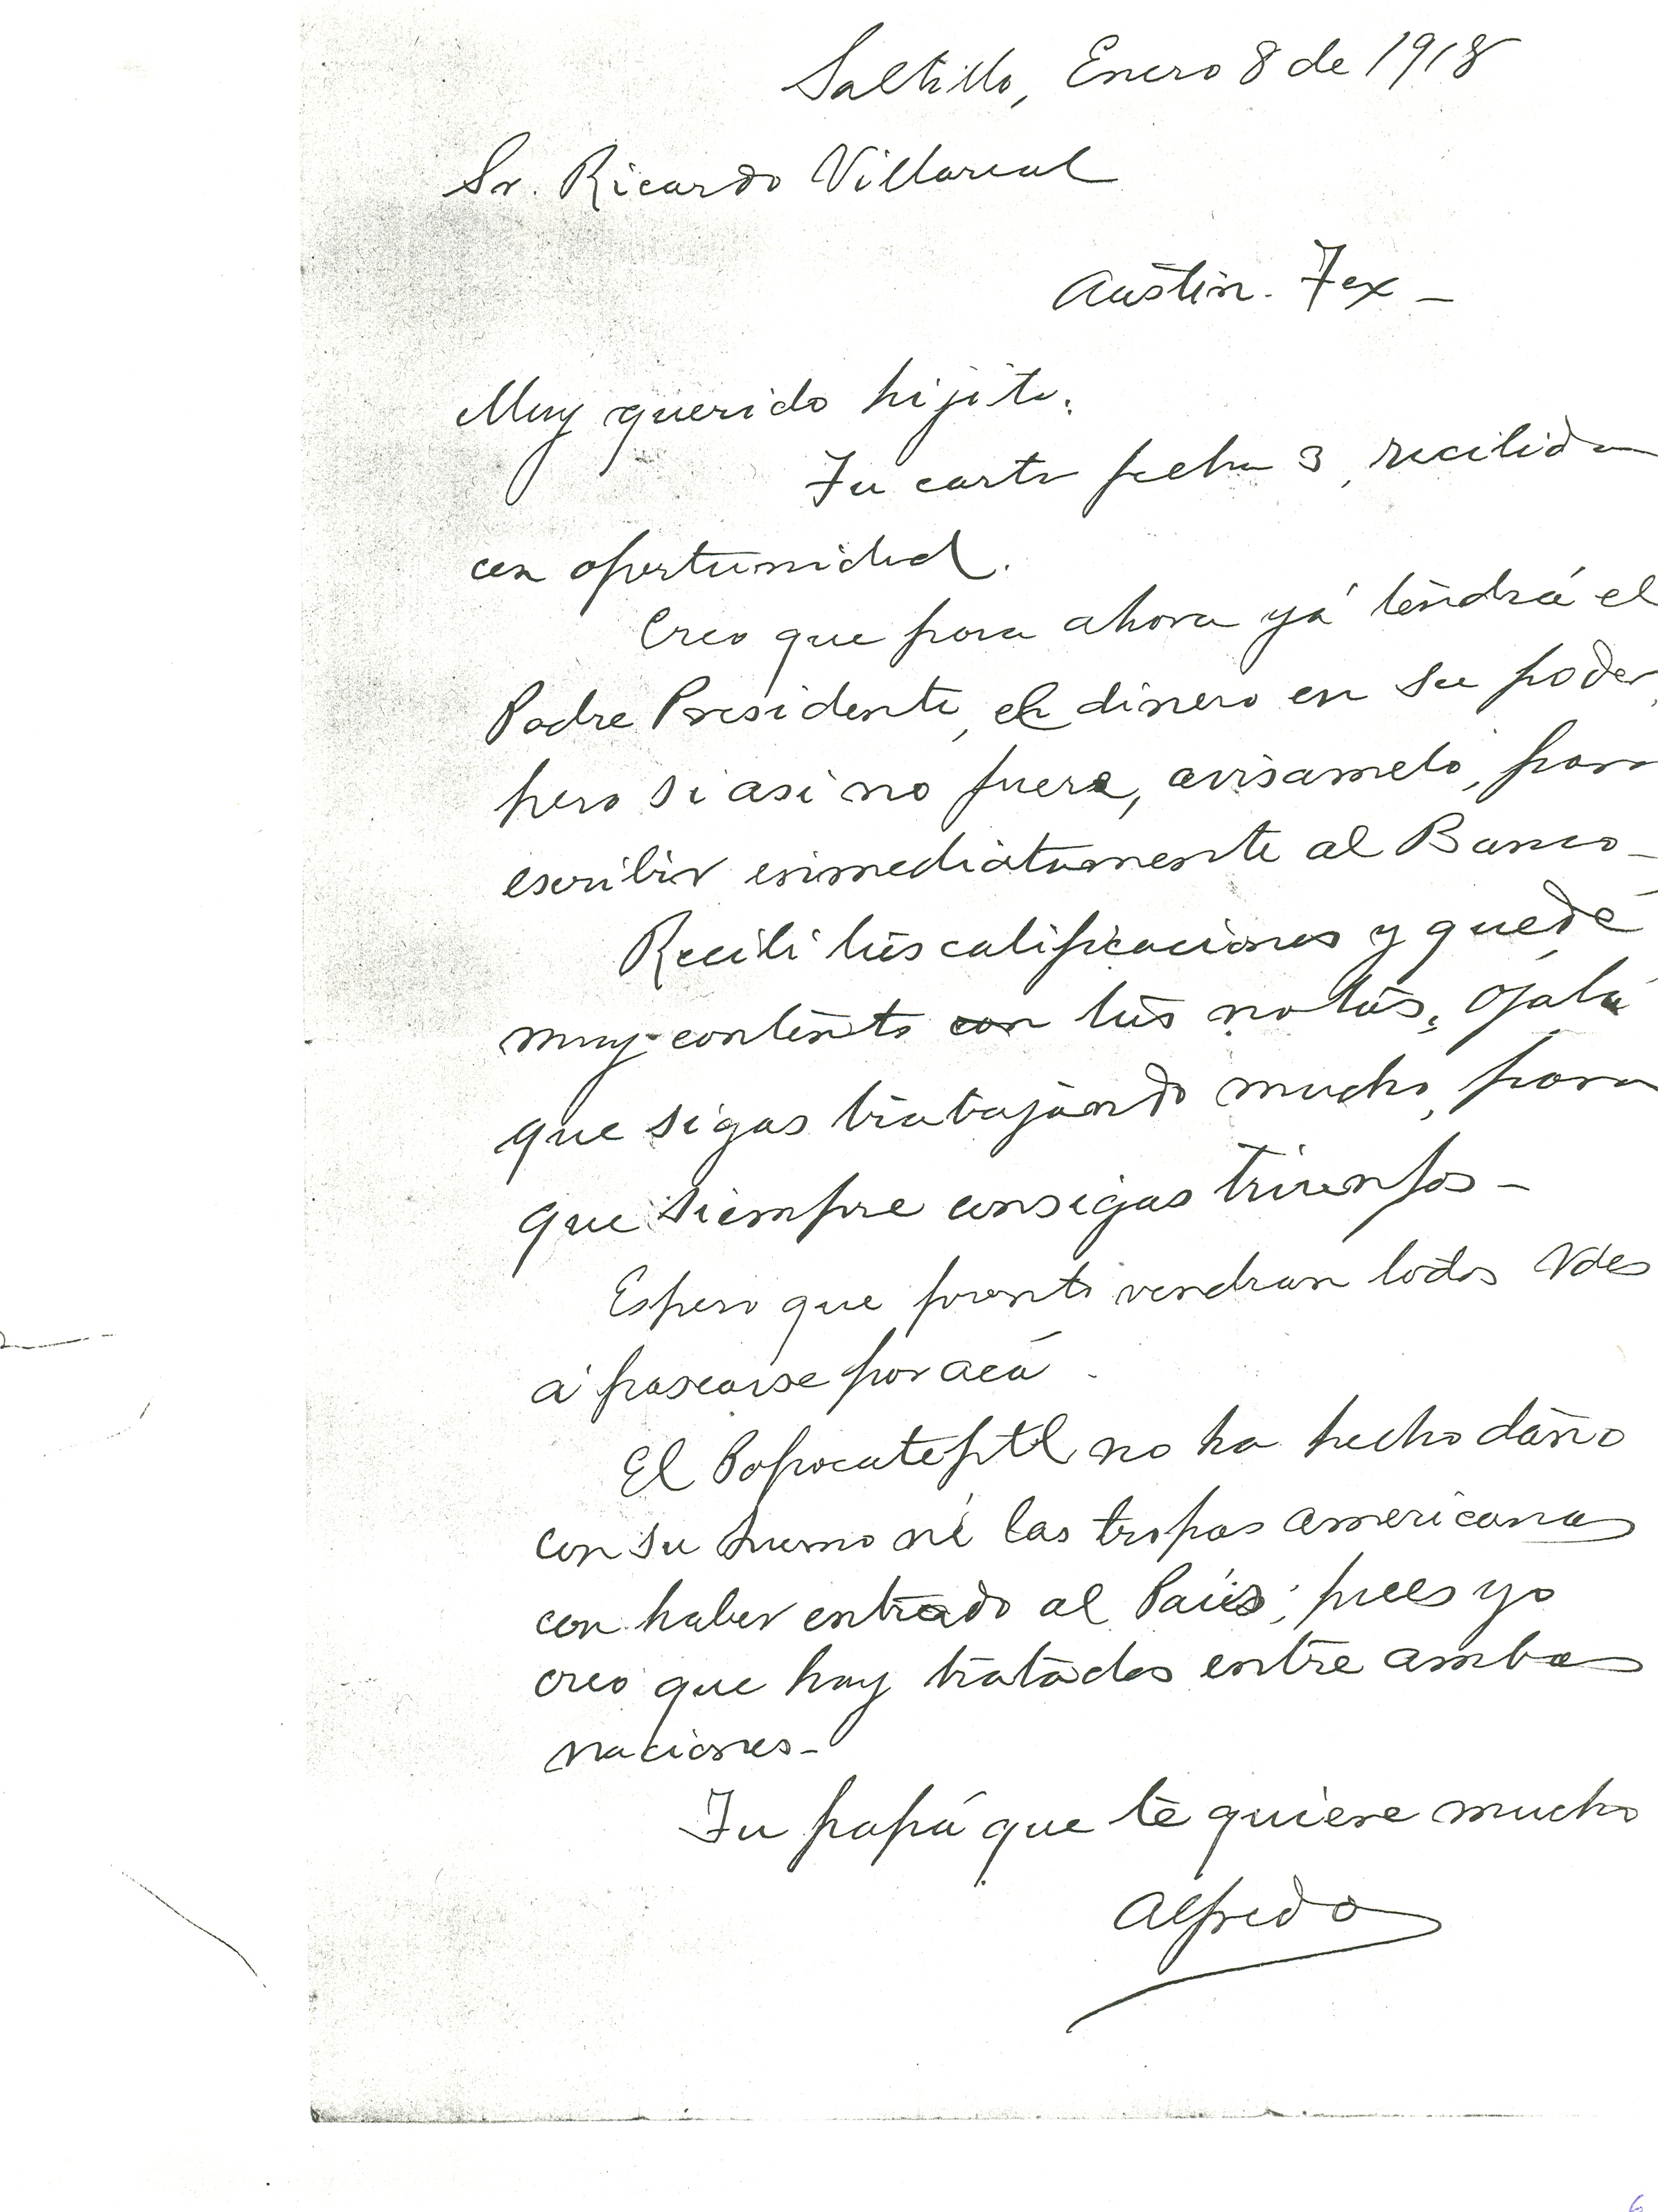 Saltillo, Enero 8 de 1918
Sr. Ricardo Villareal
Austin. Tex -
Muy querido hijito.
Tu carta fecha 3, recibida
con oportunidad.
Creo que para ahora yá tendrá el
Padre Presidente, el dinero en su poder,
pero si asi no fuera, avisamelo, para
escribir inmediatamente al Banco -
Recibi tus calificaciones y quedé
muy contento con tus notas, ojalá
que sigas trabajando mucho, para
que siempre consigas triunfos -
Espero que pronto vendran todos Vdes
á pasearse por acá.
El Popocateptl no ha hecho daño
con su humo ni las tropas americanas
con haber entrado al País; pues yo
creo que hay tratados entre ambas
naciones -
Tu papá que te quiere mucho
Alfredo